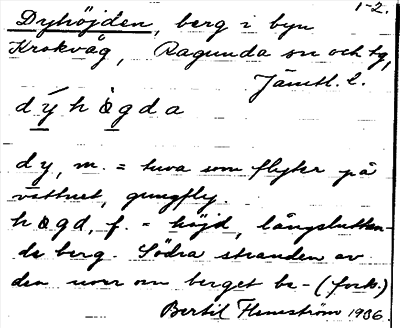 1-2.
Dyhöjden, berg i byn
Krokvåg, Ragunda sn och tg,
Jämtl. l.
dýhògda
dy, m. = tuva som flyter på
vattnet, gungfly.
högd, f. = höjd, långslutten-
de berg. Södra stranden av
den norr om berget be- (forts.)
Bertil Flemström 1936